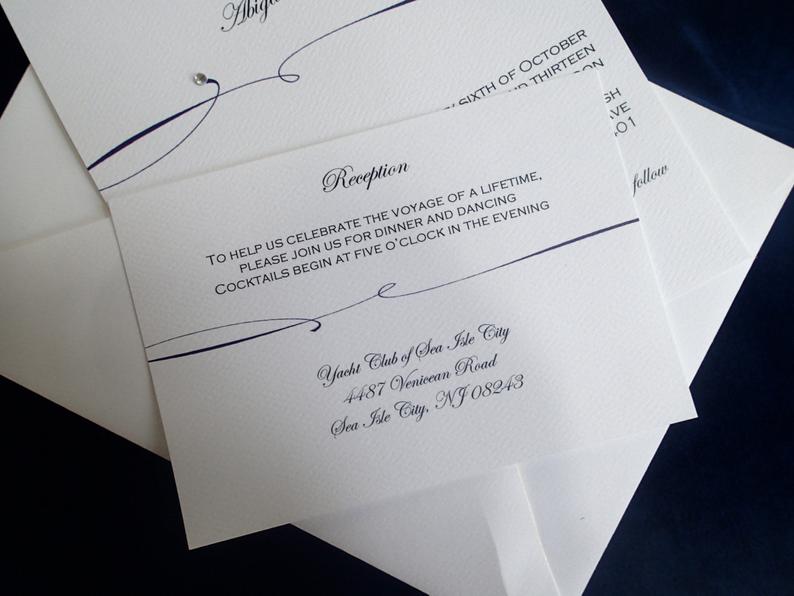 SIXTH OF OCTOBER
THIRTEEN
Reception
To help us celebrate the voyage of a lifetime,
please join us for dinner and dancing
Cocktails begin at five o'clock in the evening
Yacht Club of Sea Isle City
4487 Venicean Road
Sea Isle City, NJ 08243
follow